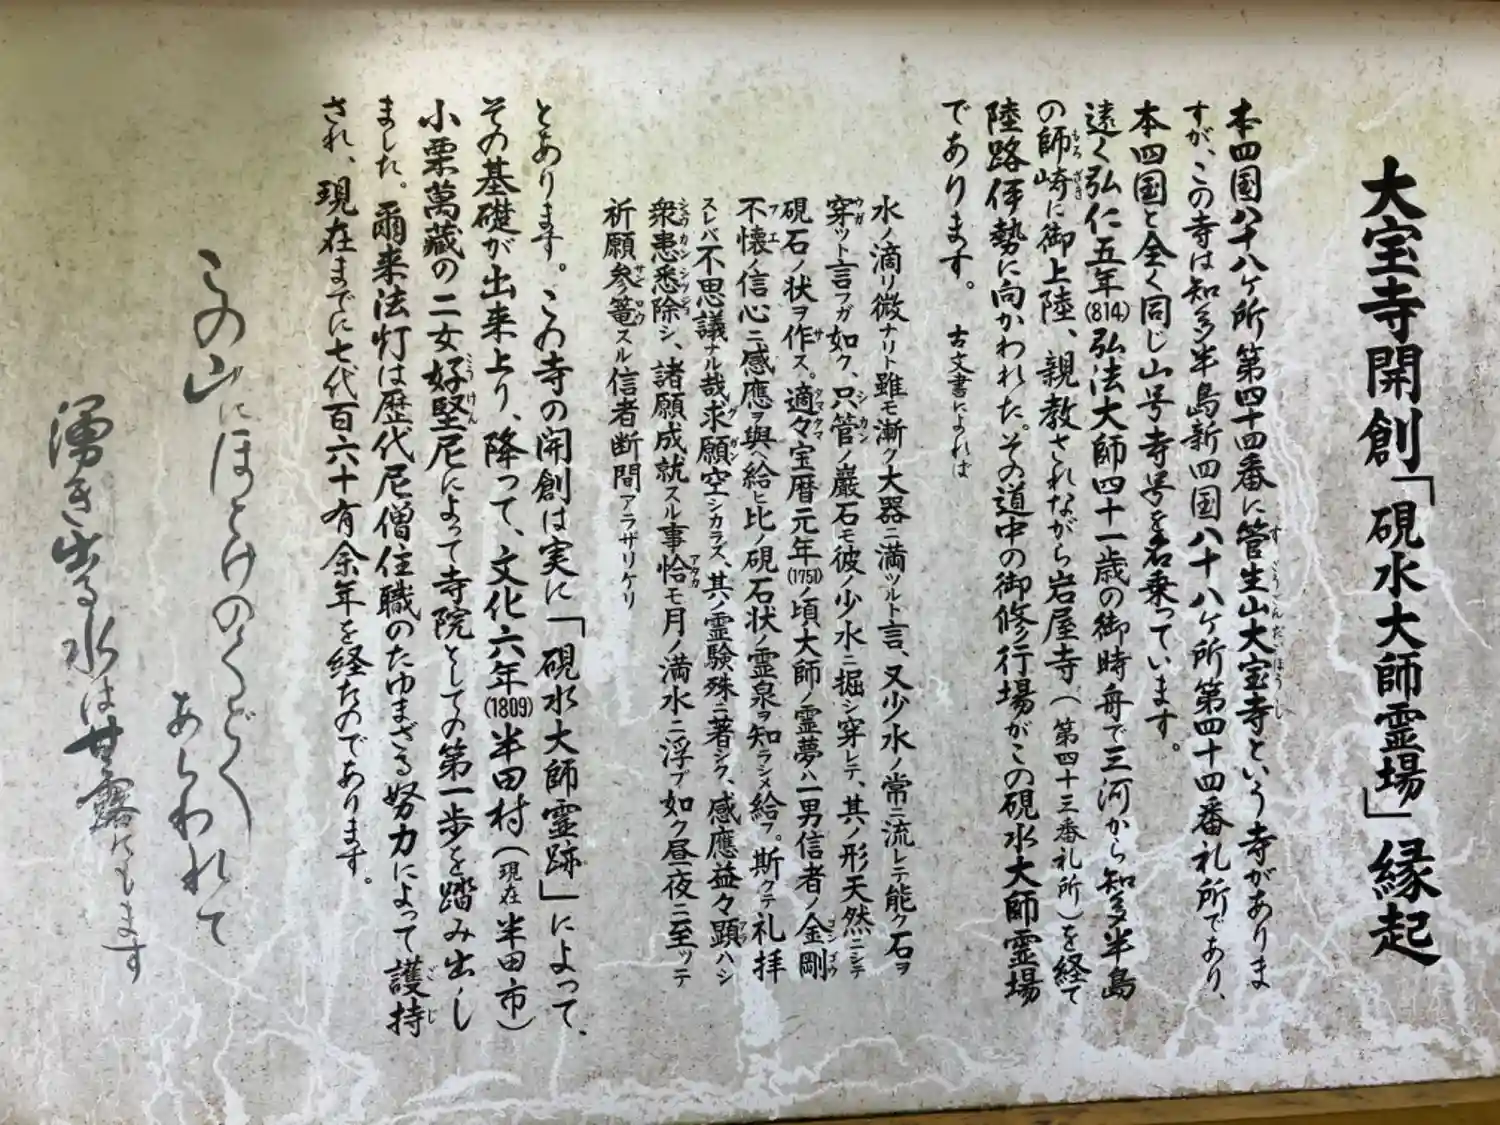 大宝寺開創「硯水大師霊場」縁起
本四国八十八ヶ所第四十四番に管生山大宝寺という寺がありま
すが、この寺は知多半島新四国八十八ヶ所第四十四番札所であり、
本四国と全く同じ山号寺号を名乗っています。
遠く弘仁五年(814)弘法大師四十一歳の御時舟で三河から知多半島
の師崎に御上陸、親教されながら岩屋寺(第四十三番札所)を経て
陸路伊勢に向かわれた。その道中の御修行場がこの硯水大師霊場
であります。 古文書によれば
水ノ滴リ微ナリト雖モ漸ク大器ニ満ツルト言、又少水ノ常ニ流レテ能ク石ヲ
穿ツト言フガ如ク、只管ノ巌石モ彼ノ少水ニ掘シ穿レテ、其ノ形天然ニシテ
硯石ノ状ヲ作ス。適々宝暦元年(1751)ノ頃大師ノ霊夢ハ一男信者ノ金剛
不懐ノ信心ニ感應ヲ與ヘ給ヒ比ノ硯石状ノ霊泉ヲ知ラシメ給フ。斯クテ礼拝
スレバ不思議ナル哉求願空シカラズ、其ノ霊験殊ニ著シク、感應益々顕ハシ
衆患悉除シ、諸願成就スル事恰モ月ノ満水ニ浮ブ如ク昼夜ニ至ッテ
祈願参篭スル信者断間アラザリケリ
とあります。この寺の開創は実に「硯水大師霊跡」によって、
その基礎が出来上り、降って、文化六年(1809)半田村(現在半田市)
小栗萬藏の二女好堅尼によって寺院としての第一歩を踏み出し
ました。爾来法灯は歴代尼僧住職のたゆまざる努力によって護持
され、現在までに七代百六十有余年を経たのであります。
この山にほとけのくどく
あらわれて
湧き出る水は甘露にもます